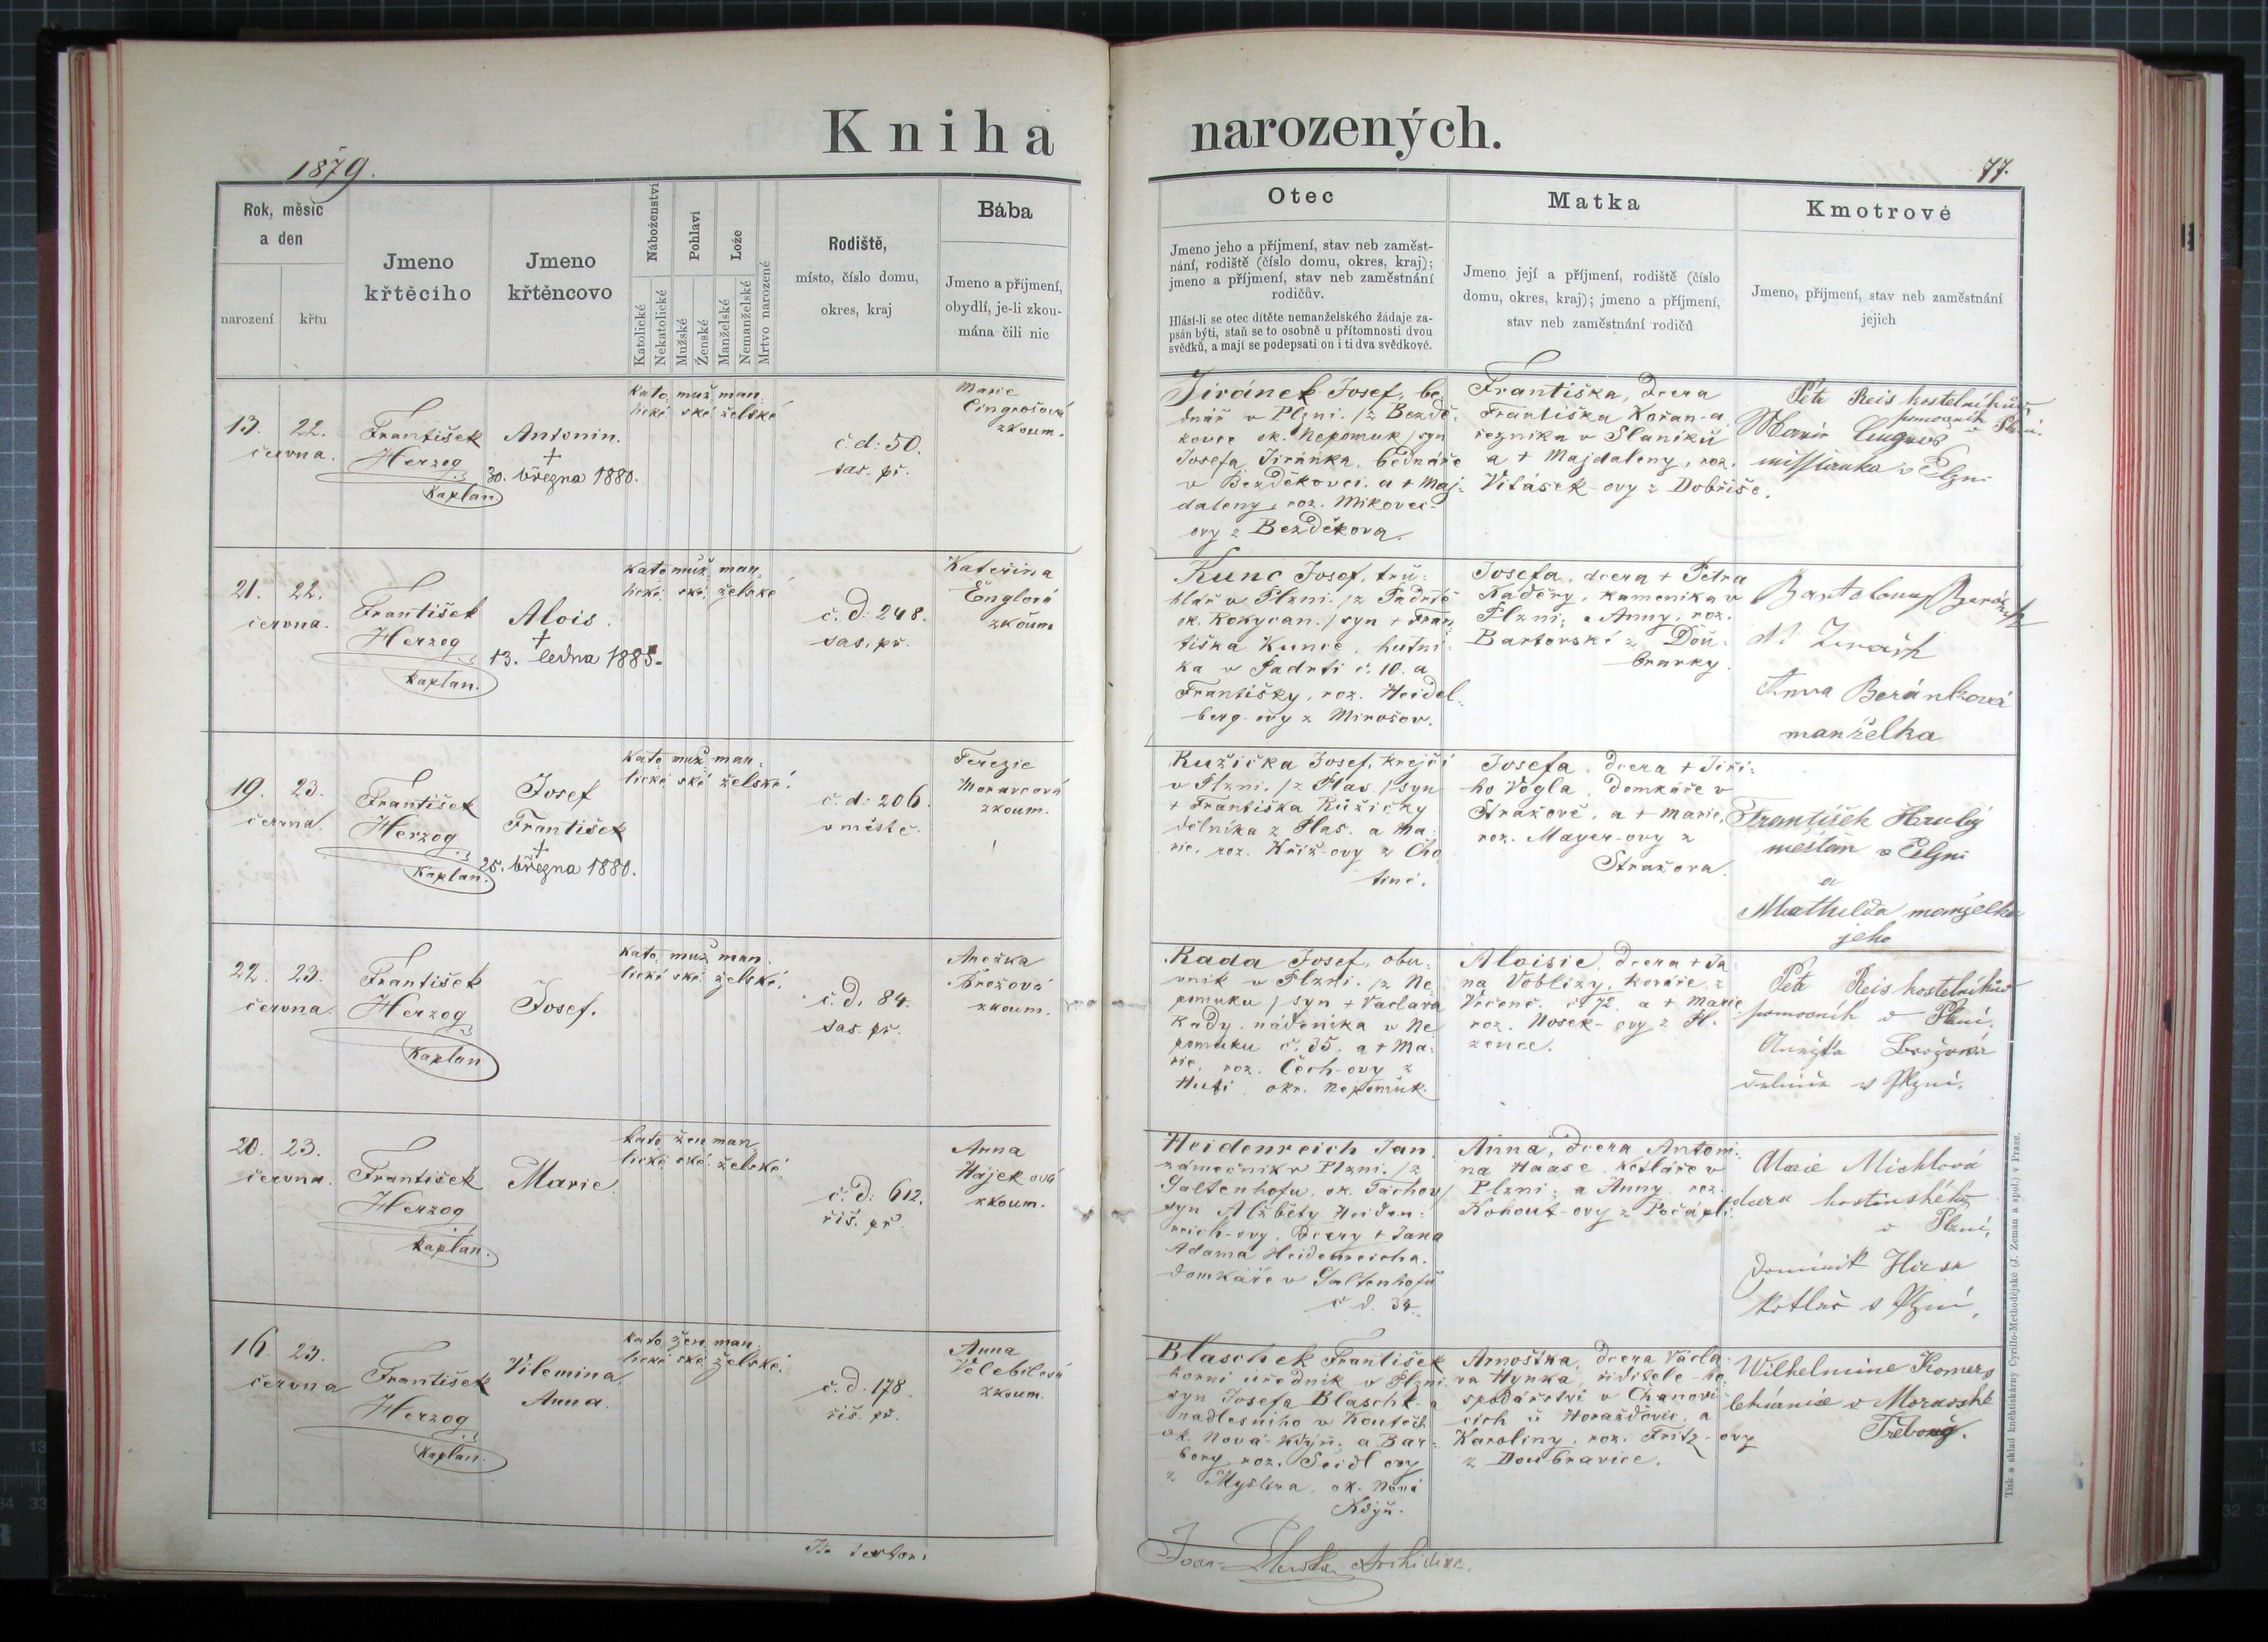 Kniha narozených.
1879.
77.
Rok, měsíc
a den
narození
křtu
Jmeno
křtěcího
Jmeno
křtěncovo
Náboženství
Katolické
Nekatolické
Pohlaví
Mužské
Ženské
Lože
Manželské
Nemanželské
Mrtvo narozené
Rodiště,
místo, číslo domu,
okres, kraj
Bába
Jmeno a příjmení,
obydlí, je-li zkou-
mána čili nic
Otec
Jmeno jeho a příjmení, stav neb zaměst-
nání, rodiště (číslo domu, okres, kraj);
jmeno a příjmení, stav neb zaměstnání
rodičův.
Hlásí-li se otec dítěte nemanželského žádaje za-
psán býti, staň se to osobně u přítomnosti dvou
svědků, a mají se podepsati on i ti dva svědkové.
Matka
Jmeno její a příjmení, rodiště (číslo
domu, okres, kraj); jmeno a příjmení,
stav neb zaměstnání rodičů
Kmotrové
Jmeno, příjmení, stav neb zaměstnání
jejich
13. 22.
června.
František
Herzog
Kaplan
Antonin.
†
30. března 1880.
kato muž man
lické ské želské
č d: 50.
sas. př.
Marie
Cingrošová
zkoum.
Jiránek Josef, be-
dnář v Plzni. /z Bezdě-
kovce ok. Nepomuk/ syn
Josefa Jiránka, bednáře
v Bezděkovci. a + Maj-
daleny, roz. Mikovec-
ovy z Bezděkova.
Františka, dcera
Františka Kořan-a
řezníka v Slaníku
a + Majdaleny, roz.
Vitásek-ovy z Dobříše.
Petr Reis kostelníků
pomocník v Plzni.
Marie
v Plzni
21. 22.
června.
František
Herzog
Kaplan.
Alois.
†
13. ledna 1885.
kato muž man
lické ské želské
č. d: 248.
sas. př.
Kateřina
Englová
zkoum
Kunc Josef, tru-
hlář v Plzni. /z Padrtě
ok. Rokycan./ syn + Fran-
tiška Kunce, hutní-
ka v Padrti č. 10. a
Františky, roz. Heidel-
berg-ovy z Mirošov.
Josefa, dcera + Petra
Kaděry, kameníka v
Plzni; a Anny, roz.
Bartovské z Dou-
bravky.
Anna Beránková
manželka
19. 23.
června.
František
Herzog
Kaplan.
Josef
František
†
25. března 1880.
kato muž man
lické ské želské.
č. d: 206.
v městě.
Terezie
Moravcová
zkoum.
Ružička Josef, krejčí
v Plzni. /z Plas./ syn
+ Františka Růžičky
dělníka z Plas. a Ma-
rie, roz. Kříž-ovy z Cho
tiné.
Josefa, dcera + Jiří-
ho Vogla, domkáře v
Stražově, a + Marie,
roz. Mayer-ovy z
Stražova.
František Hrubý
měšťan v Plzni
a
Mathilda manželka
jeho
22. 23.
června.
František
Herzog
Kaplan
Josef.
kato muž man
lické ské želské.
č. d. 84.
sas. př.
Anežka
Brožová
zkoum.
Rada Josef, obu-
vník v Plzni. /z Ne-
pomuku/ syn + Vaclava
Rady, nádeníka v Ne
pomuku č. 35. a + Ma-
rie, roz. Čech-ovy z
Huti okr. Nepomuk.
Aloisie, dcera + Ja-
na Voblizy, kováře z
Vrčeně. č 72. a + Marie
roz. Nosek-ovy z Pl.
zence.
Petr Reis kostelníků
pomocník v Plzni.
Brožová
v Plzni.
20. 23.
června.
František
Herzog
Kaplan.
Marie
kato žen man
lické ské želské
č. d: 612.
řiš. př.
Anna
Hájek ová
zkoum.
Heidenreich Jan,
zámečník v Plzni. /z
Galtenhofu, ok. Tachov/
syn Alžběty Heiden-
reich-ovy, dcery + Jana
Adama Heidenreicha,
domkáře v Galtenhofu
č d. 34.
Anna, dcera Antoni-
na Haase, kotláře v
Plzni; a Anny roz.
Kohout-ovy z Počápli
Marie Michlová
dcera hostinského
v Plzni,
Dominik
kotlář v Plzni,
16. 23.
června
František
Herzog
Kaplan.
Vilemina,
Anna.
kato žen man
lické ské želské.
č. d. 178.
řiš. př.
Anna
Velebilová
zkoum.
Blaschek František
horní úředník v Plzni.
syn Josefa Blaschk-a
nadlesního v Koutech
ok. Nová-Kdyň; a Bar-
bory roz. Seidl ovy
z Myslíva, ok. Nová
Kdyň.
Arnoštka, dcera Václa-
va Hynka, ředitele ho-
spodářství v Čkanovi-
cích u Horažďovic; a
Karoliny, roz. Fritz-ovy
z Doubravice.
Wilhelmine Komers
v Moravské
Třebové.
Archidiac.
Tisk a sklad kněhtiskárny Cyrillo-Methodějské (J. Zeman a spol.) v Praze.